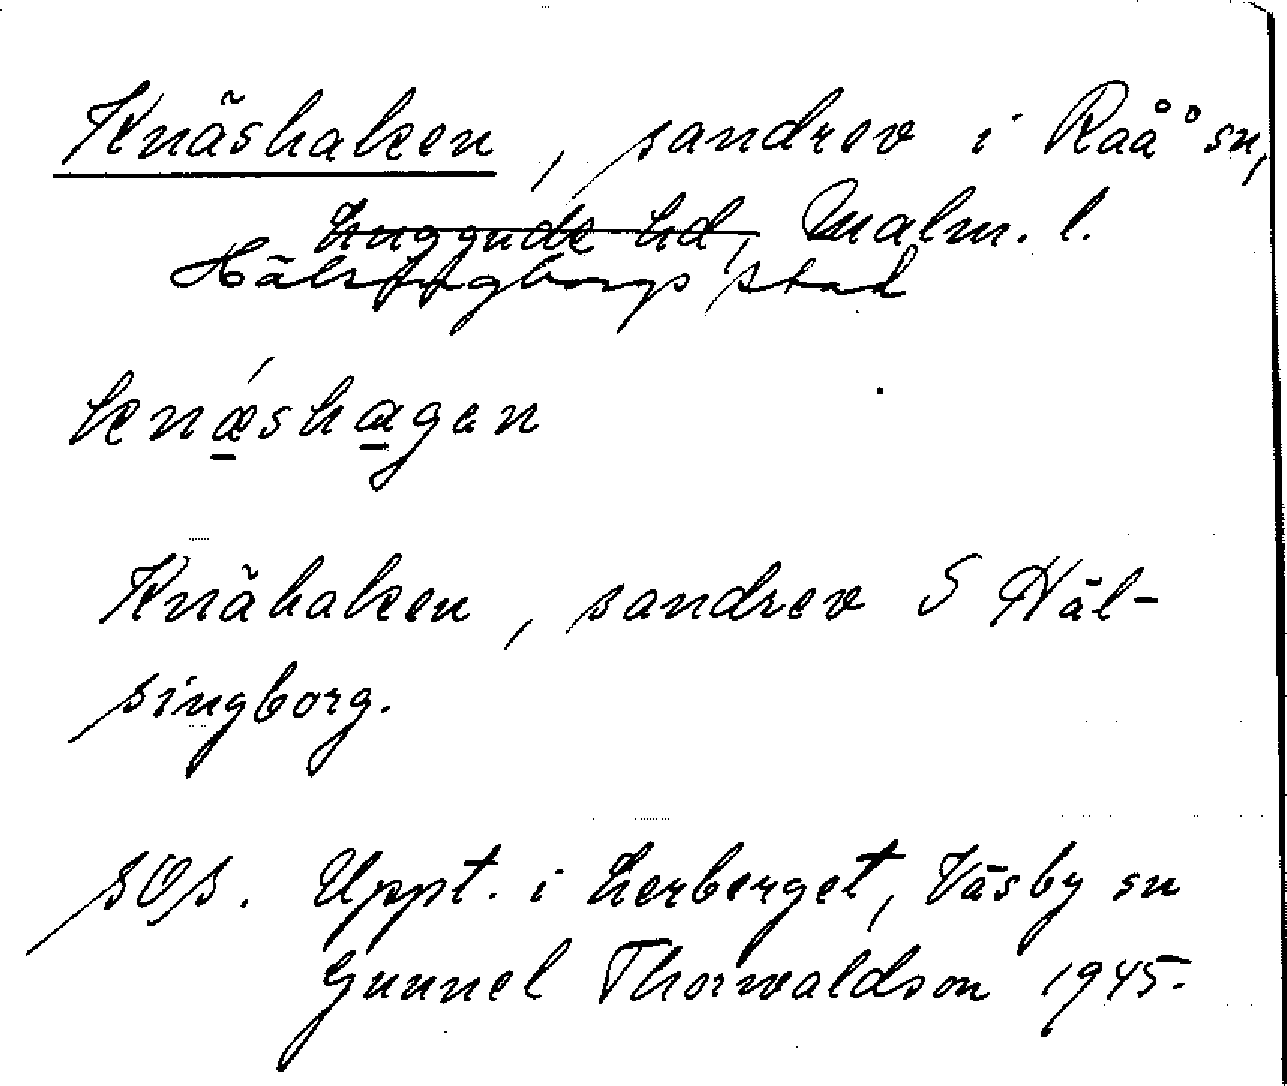 Knäshaken, sandrev i Raå° sn,
Luggude hd, Malm. l.
Hälsingborgs stad
knǽshagen
Knähaken, sandrev S Häl-
singborg.
sOs. Uppt. i Lerberget, Väsby sn
Gunnel Thorwaldson 1945.